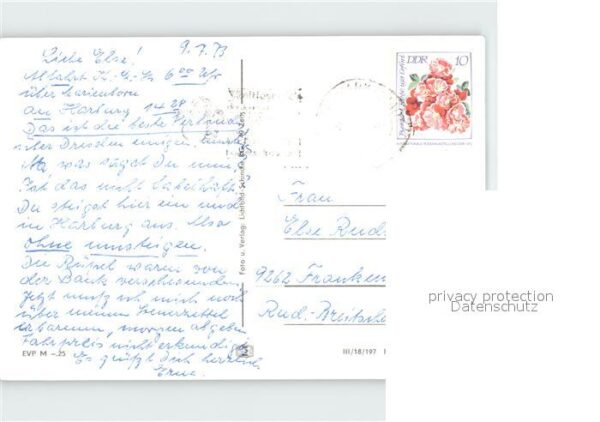 9.7.73
Liebe Else!
Abfahrt K.-M.-St 6 00 Uhr
über Marienborn
an Harburg 14 28
Das ist die beste Verbind
über Dresden einigen
Na was sagst du nun,
Ist das nicht fabelhaft.
Du steigst hier ein und
in Harburg aus. Also
ohne umsteigen.
Die Rätsel waren von
der Bank verschwunden
Jetzt muß ich mich noch
über meinen Steuerzettel
erbarmen, morgen abgeben
Fahrpreis nicht erkundigt
Es grüßt dich herzlich
Erna.
EVP M -.25
Foto u. Verlag: Lichtbild
III/18/197
DDR 10
Frau
Else Rud
9262 Franken
Rud.-Breitsche
privacy protection
Datenschutz